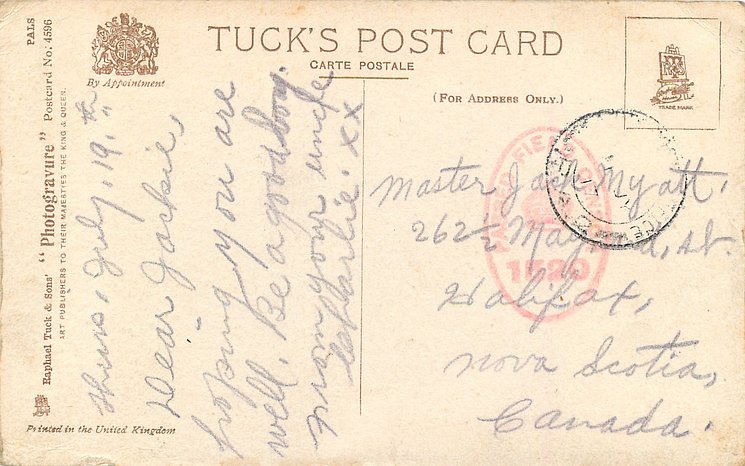 TUCK'S POST CARD
CARTE POSTALE
By Appointment
(FOR ADDRESS ONLY.)
TRADE MARK
PALS
Raphael Tuck & Sons' "Photogravure" Postcard No: 4596
ART PUBLISHERS TO THEIR MAJESTIES THE KING & QUEEN.
Printed in the United Kingdom
Thurs, July, 19th
Dear Jackie,
hoping you are
well. Be a good boy.
From your uncle
Charlie. xx
Master Jack Myatt.
262½ Maynard, St.
Halifax,
Nova Scotia,
Canada.
FIELD
1520